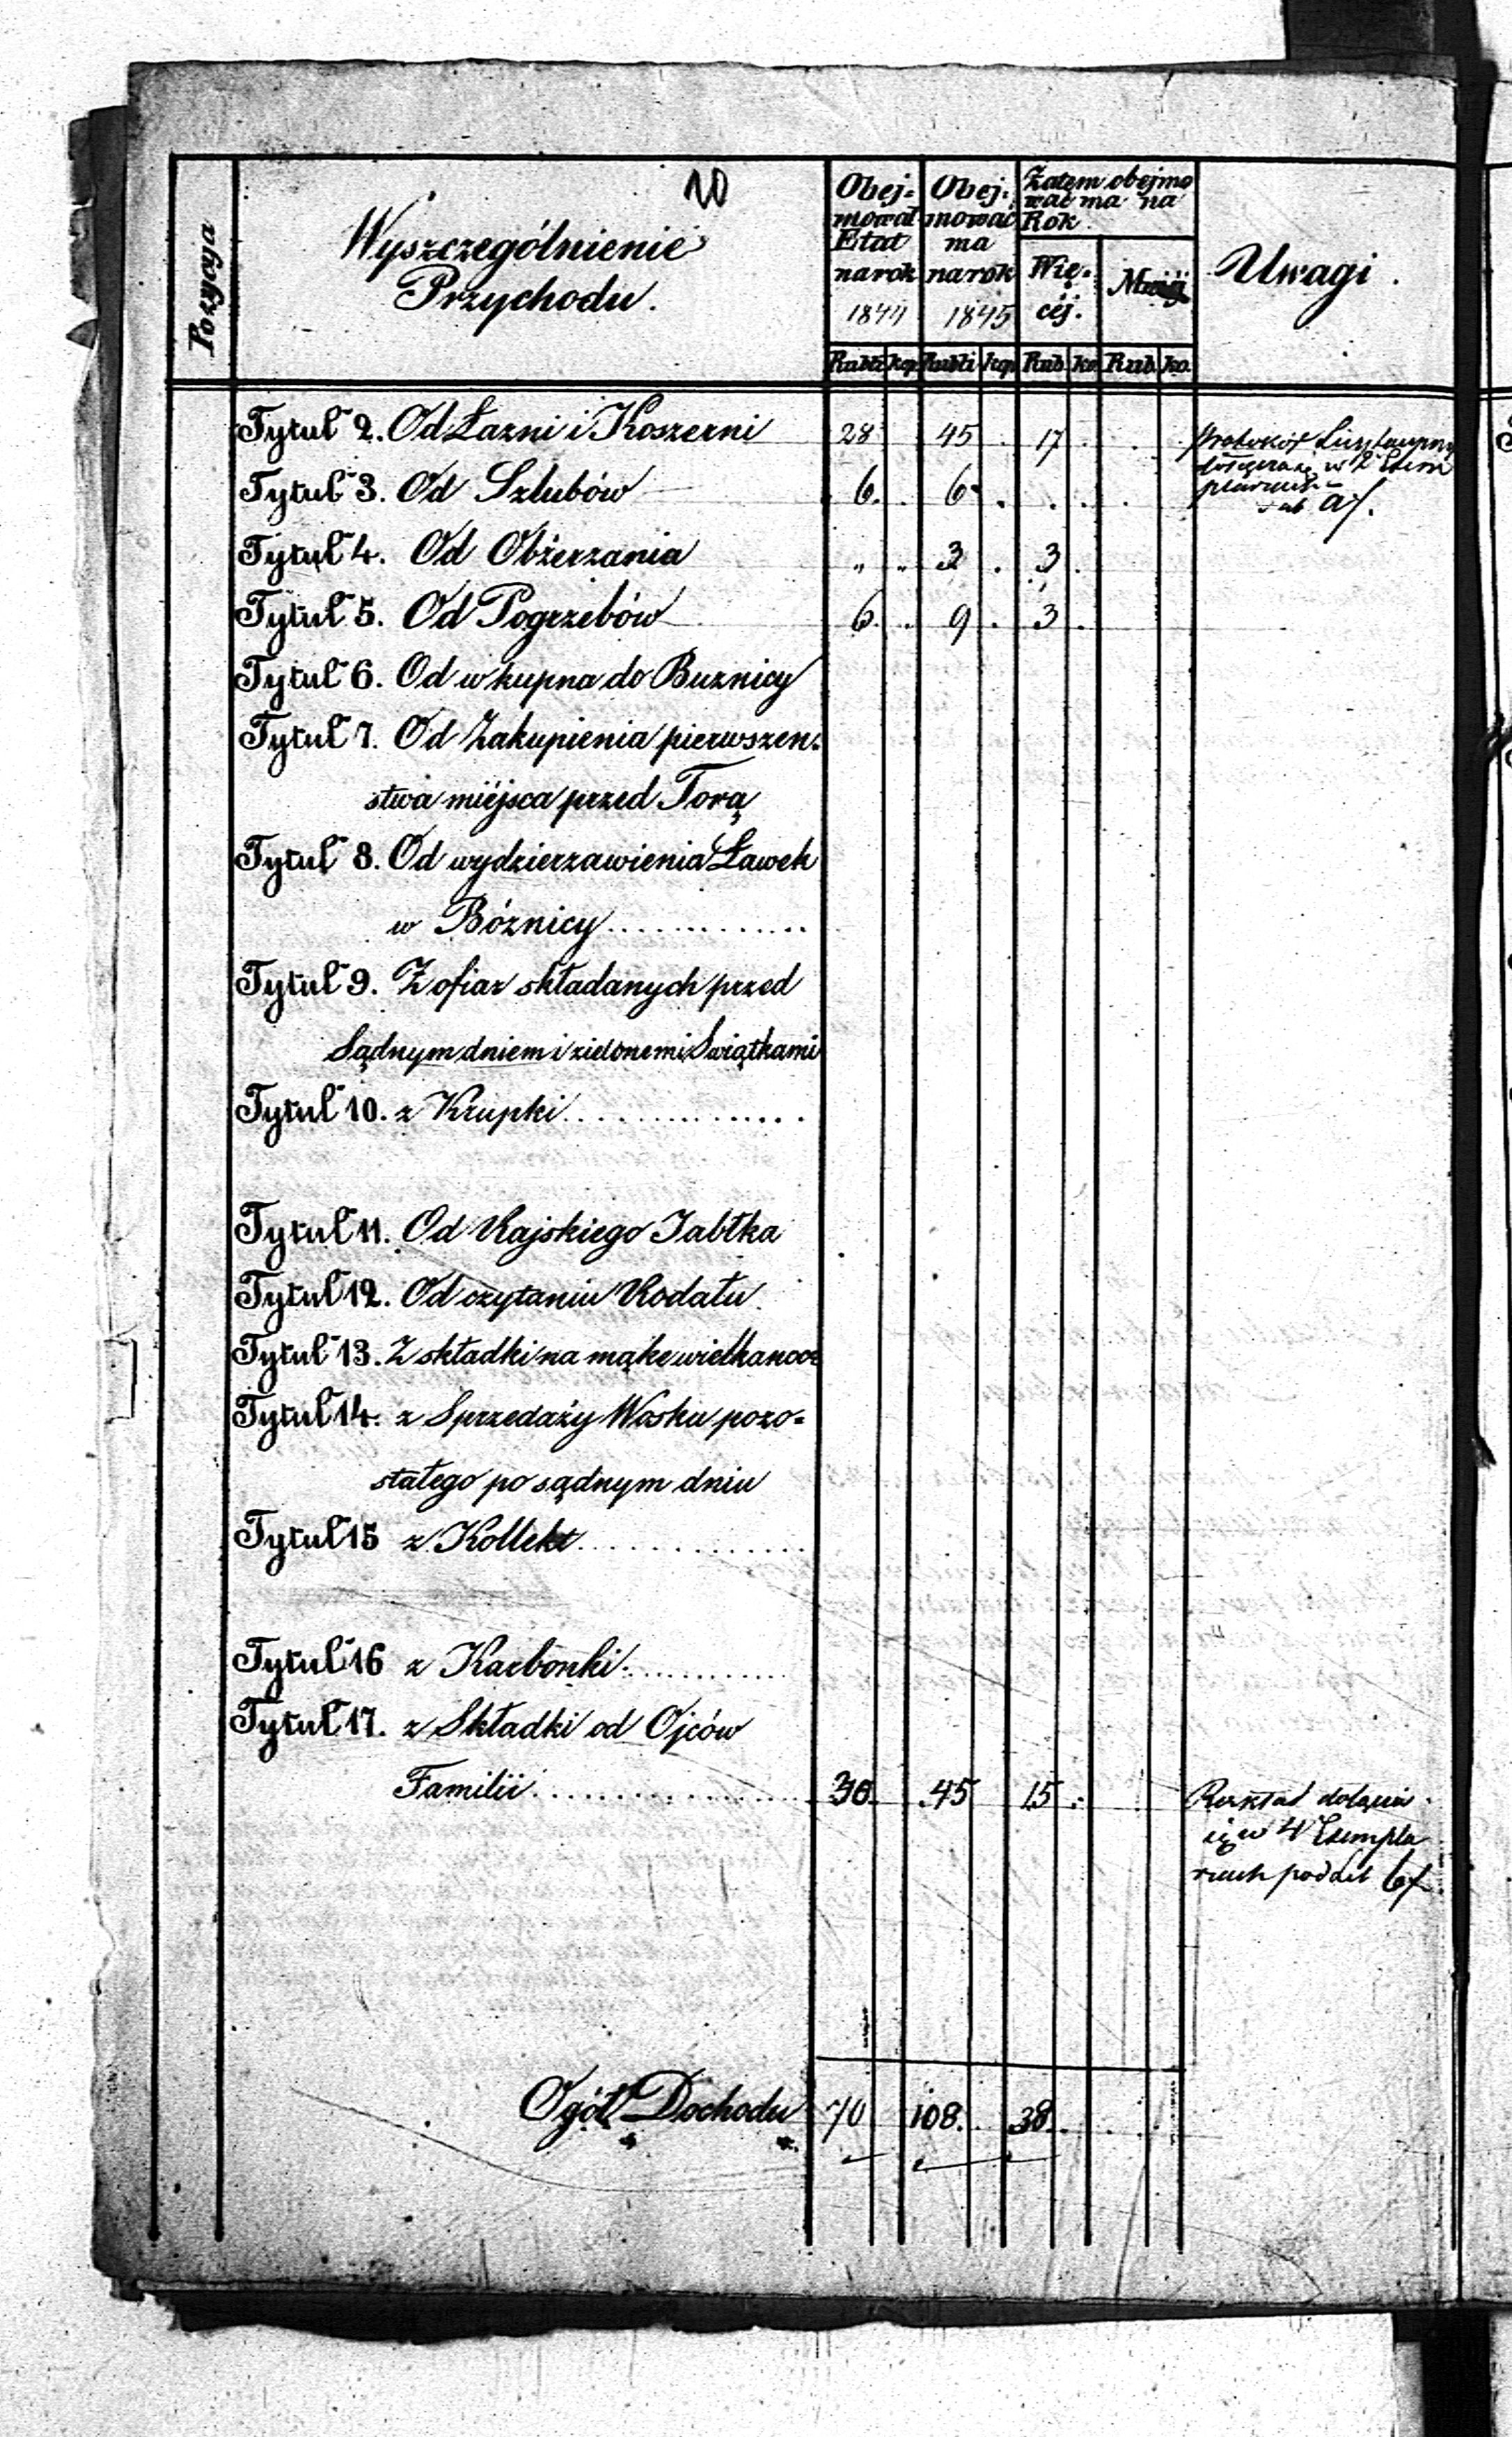 10
Pozycya
Wyszczególnienie
Przychodu.
Obej-
mował
Etat
na rok
1844
Obej-
mować
ma
na rok
1845
Zatem obejmo
wać ma na
Rok
Wię-
céj.
Mniéj
Uwagi.
Rubli kop Rubli kop Rub. ko. Rub. ko.
Tytuł 2. Od Łazni i Koszerni 28 45 17 Protokół Licytacyjny
w 2 Exem
plarzach
sub a/.
Tytuł 3. Od Szlubów 6. 6.
Tytuł 4. Od Obżerzania " " 3 3
Tytuł 5. Od Pogrzebów 6. 9 3
Tytuł 6. Od wkupna do Buznicy
Tytuł 7. Od Zakupienia pierwszen-
stwa miejsca przed Torą
Tytuł 8. Od wydzierzawienia Ławek
w Bóznicy.............
Tytuł 9. Z ofiar składanych przed
Sądnym dniem i zielonemi Swiątkami
Tytuł 10. z Krupki..............
Tytuł 11. Od Rajskiego Jabłka
Tytuł 12. Od czytaniu Rodału.
Tytuł 13. Z składki na mąke wielkanoc
Tytuł 14. z Sprzedaży Wosku pozo-
stałego po sądnym dniu
Tytuł 15 z Kollekt.............
Tytuł 16 z Karbonki...........
Tytuł 17. z Składki od Ojców
Familii................ 30. 45 15 Rozkład dołącza
się w 4 Exempla
rzach pod lit b/.
Ogół Dochodu 70 108. 38.